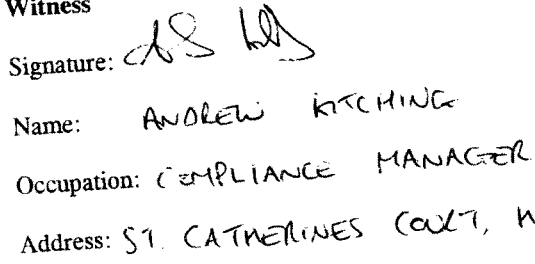 Witness
Signature:
Name: ANDREW KITCHING
Occupation: COMPLIANCE MANAGER
Address: ST. CATHERINES COURT, H